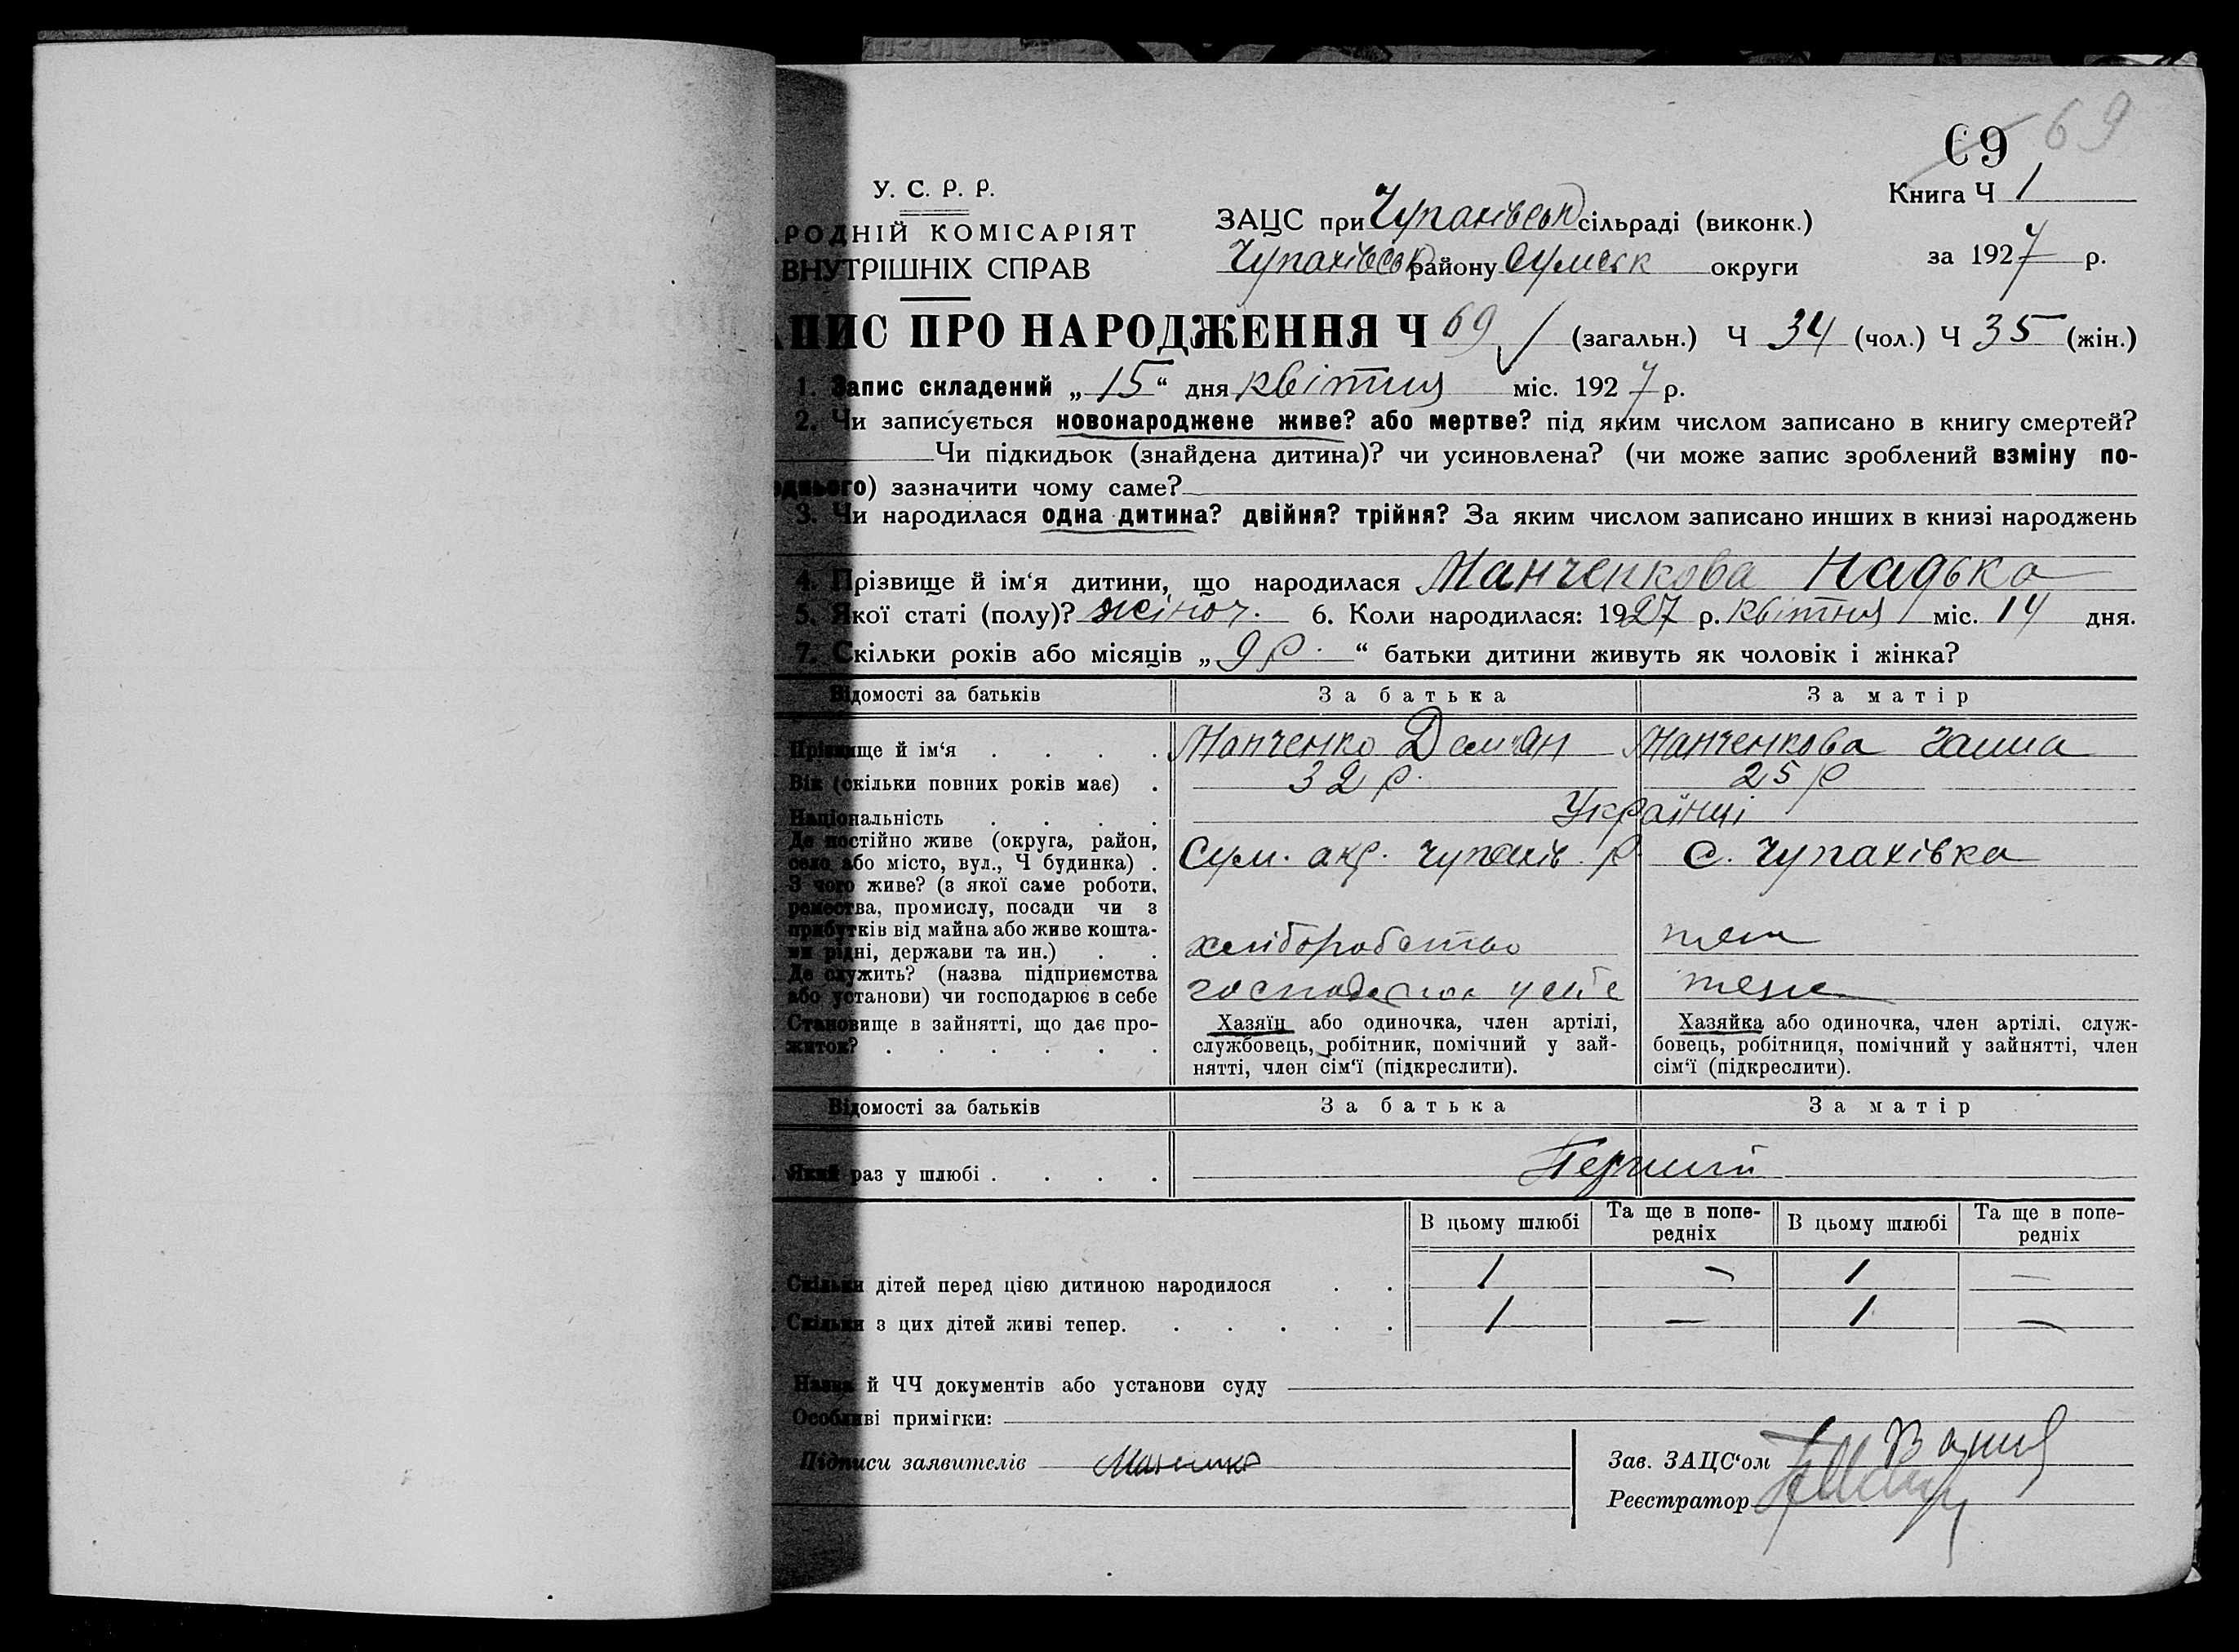 69 69
У. С. Р. Р.
Книга Ч 1
РОДНІЙ КОМІСАРІЯТ
ЗАЦС при Чупахівськ сільраді (виконк.)
ВНУТРІШНІХ СПРАВ
Чупахівськ району Сумськ округи
за 1927 р.
ПИС ПРО НАРОДЖЕННЯ Ч 69 (загальн.) Ч 34 (чол.) Ч 35 (жін.)
1. Запис складений „ 15 “ дня квітня міс. 1927 р.
2. Чи записується новонароджене живе? або мертве? під яким числом записано в книгу смертей?
Чи підкидьок (знайдена дитина)? чи усиновлена? (чи може запис зроблений взміну по-
однього) зазначити чому саме?
3. Чи народилася одна дитина? двійня? трійня? За яким числом записано инших в книзі народжень
4. Прізвище й ім‘я дитини, що народилася Манченкова Надька
5. Якої статі (полу)? жіноч. 6. Коли народилася: 1927 р. квітня міс. 14 дня.
7. Скільки років або місяців „ 9 р. “ батьки дитини живуть як чоловік і жінка?
Відомості за батьків За батька За матір
Прізвище й ім‘я . . . . Манченко Демян Манченкова Ганна
Вік (скільки повних років має) . 32 р. 25 р
Національність . . . . Українці
Де постійно живе (округа, район,
село або місто, вул., Ч будинка) . Сум. окр. Чупахів. р. с. Чупахівка
З чого живе? (з якої саме роботи,
ремества, промислу, посади чи з
прибутків від майна або живе кошта-
ми рідні, держави та ин.) . . хліборобство теж
Де служить? (назва підприємства
або установи) чи господарює в себе господарює у себе теж
Становище в зайнятті, що дає про-
житок? . . . . . .
Хазяїн або одиночка, член артілі,
службовець, робітник, помічний у зай-
нятті, член сім‘ї (підкреслити).
Хазяйка або одиночка, член артілі, служ-
бовець, робітниця, помічний у зайнятті, член
сім‘ї (підкреслити).
Відомості за батьків За батька За матір
Який раз у шлюбі . . . . Перший
В цьому шлюбі Та ще в попе-
редніх В цьому шлюбі Та ще в попе-
редніх
Скільки дітей перед цією дитиною народилося . . 1 — 1 —
Скільки з цих дітей живі тепер. . . . . . 1 — 1 —
Назва й ЧЧ документів або установи суду
Особливі примігки:
Підписи заявителів Манченко
Зав. ЗАЦС‘ом
Реєстратор